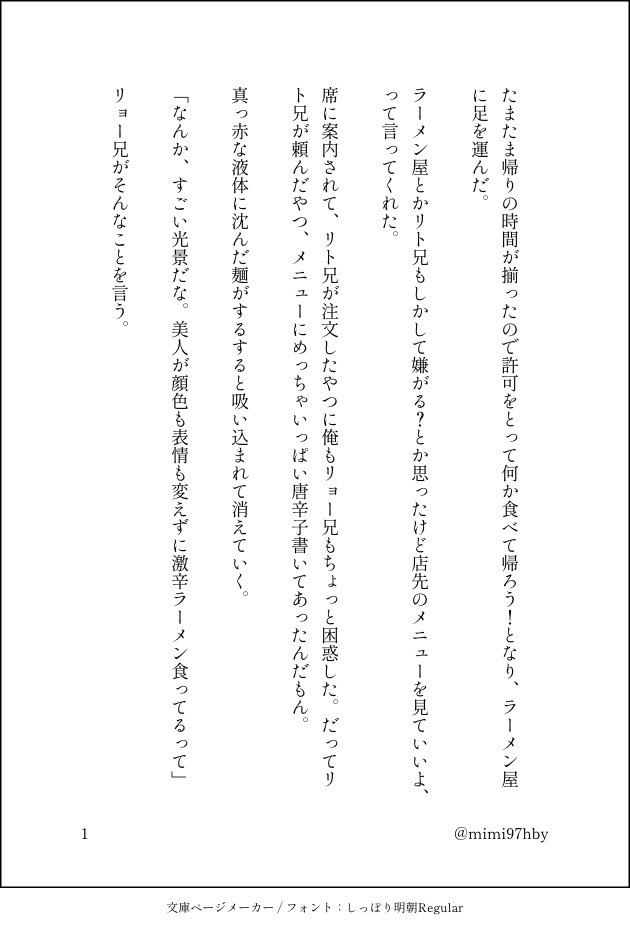 たまたま帰りの時間が揃ったので許可をとって何か食べて帰ろう！となり、ラーメン屋
に足を運んだ。
ラーメン屋とかリト兄もしかして嫌がる？とか思ったけど店先のメニューを見ていいよ、
って言ってくれた。
席に案内されて、リト兄が注文したやつに俺もリョー兄もちょっと困惑した。だってリ
ト兄が頼んだやつ、メニューにめっちゃいっぱい唐辛子書いてあったんだもん。
真っ赤な液体に沈んだ麺がするすると吸い込まれて消えていく。
「なんか、すごい光景だな。美人が顔色も表情も変えずに激辛ラーメン食ってるって」
リョー兄がそんなことを言う。
1
@mimi97hby
文庫ページメーカー / フォント：しっぽり明朝Regular